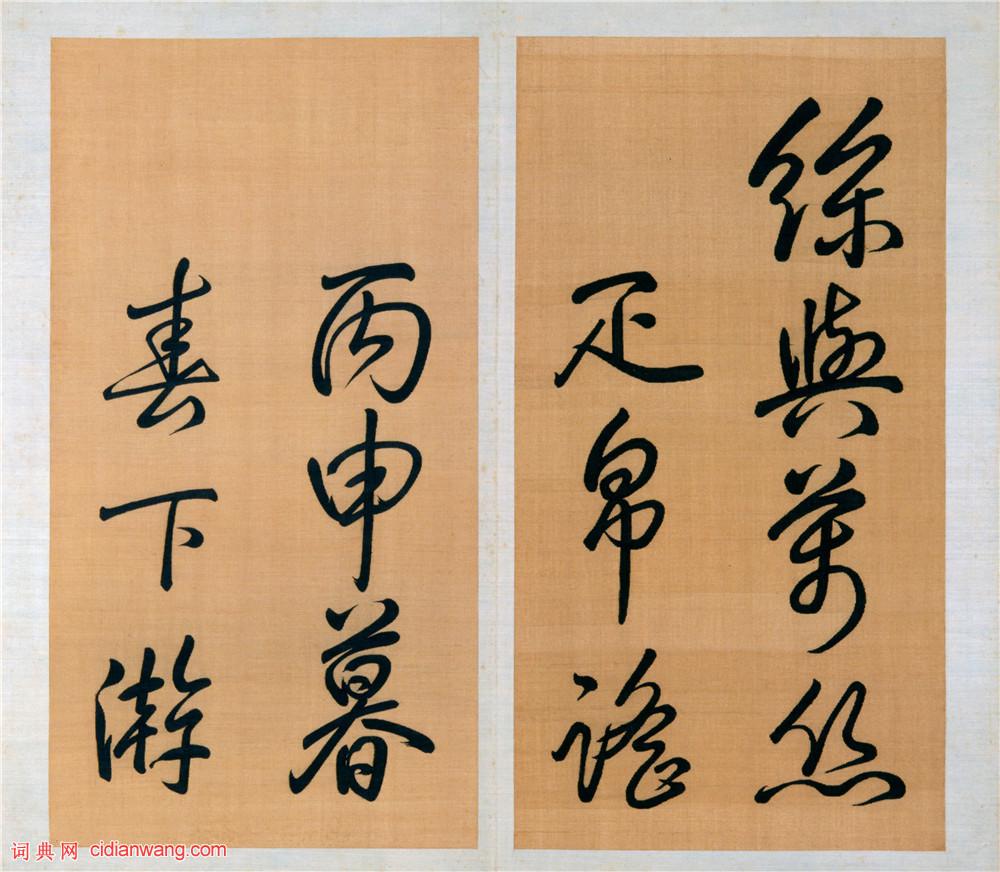 絲與萬絲
疋帛謠
丙申暮
春下澣
词典网 cidianwang.com